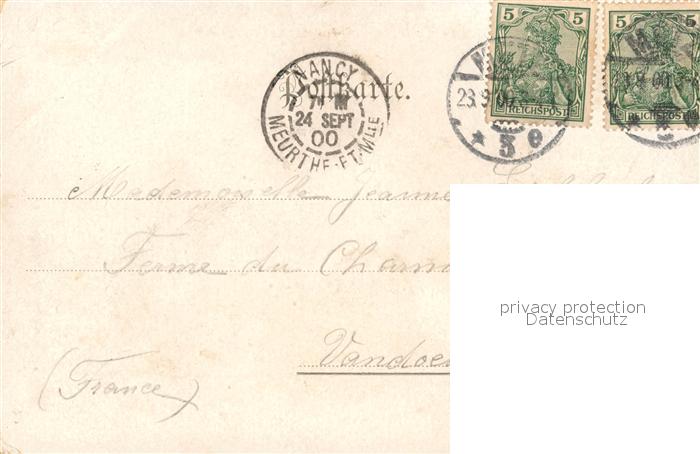 5 5 5
REICHSPOST REICHSPOST
23.9.00
5 e
Postkarte.
NANCY
24 SEPT
00
MEURTHE-ET-Mlle
Mademoiselle Jeanne
Ferme du Charm
Vandoe
(France)
privacy protection
Datenschutz